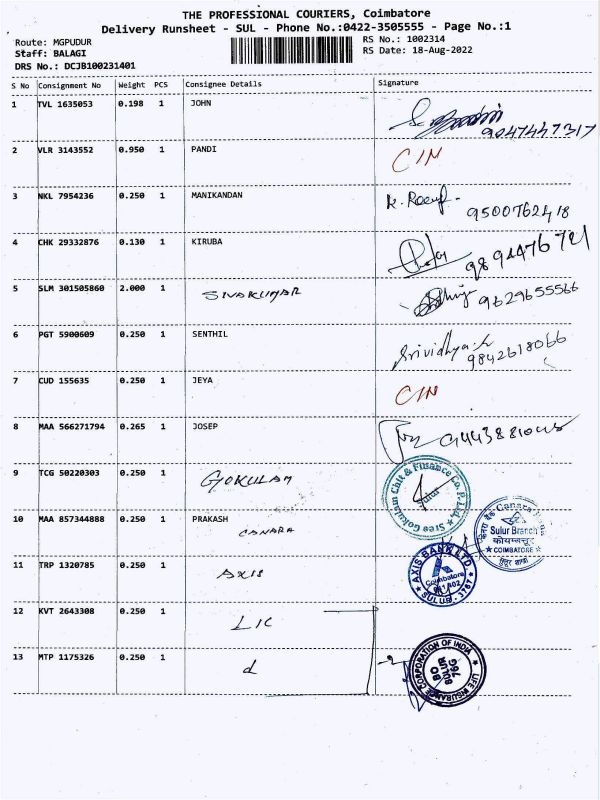 THE PROFESSIONAL COURIERS, Coimbatore
Delivery Runsheet - SUL - Phone No.:0422-3505555 - Page No.:1
Route: MGPUDUR RS No.: 1002314
Staff: BALAGI RS Date: 18-Aug-2022
DRS No.: DCJB100231401
S No Consignment No Weight PCS Consignee Details Signature
1 TVL 1635053 0.198 1 JOHN
9047447317
2 VLR 3143552 0.950 1 PANDI CIN
3 NKL 7954236 0.250 1 MANIKANDAN
9500762418
4 CHK 29332876 0.130 1 KIRUBA
9894476721
5 SLM 301505860 2.000 1 SIVAKUMAR 9629655566
6 PGT 5900609 0.250 1 SENTHIL Srividhya
9842618066
7 CUD 155635 0.250 1 JEYA CIN
8 MAA 566271794 0.265 1 JOSEP
9 TCG 50220303 0.250 1 GOKULAM
Sree Gokulam Chit & Finance Co. P. Ltd.
Sulur
10 MAA 857344888 0.250 1 PRAKASH
CANARA
Canara
Sulur Branch
COIMBATORE
11 TRP 1320785 0.250 1 AXIS
AXIS BANK LTD.
Coimbatore
SULUR
12 KVT 2643308 0.250 1 LIC
13 MTP 1175326 0.250 1 d
LIFE INSURANCE CORPORATION OF INDIA
B O
SULUR
76G